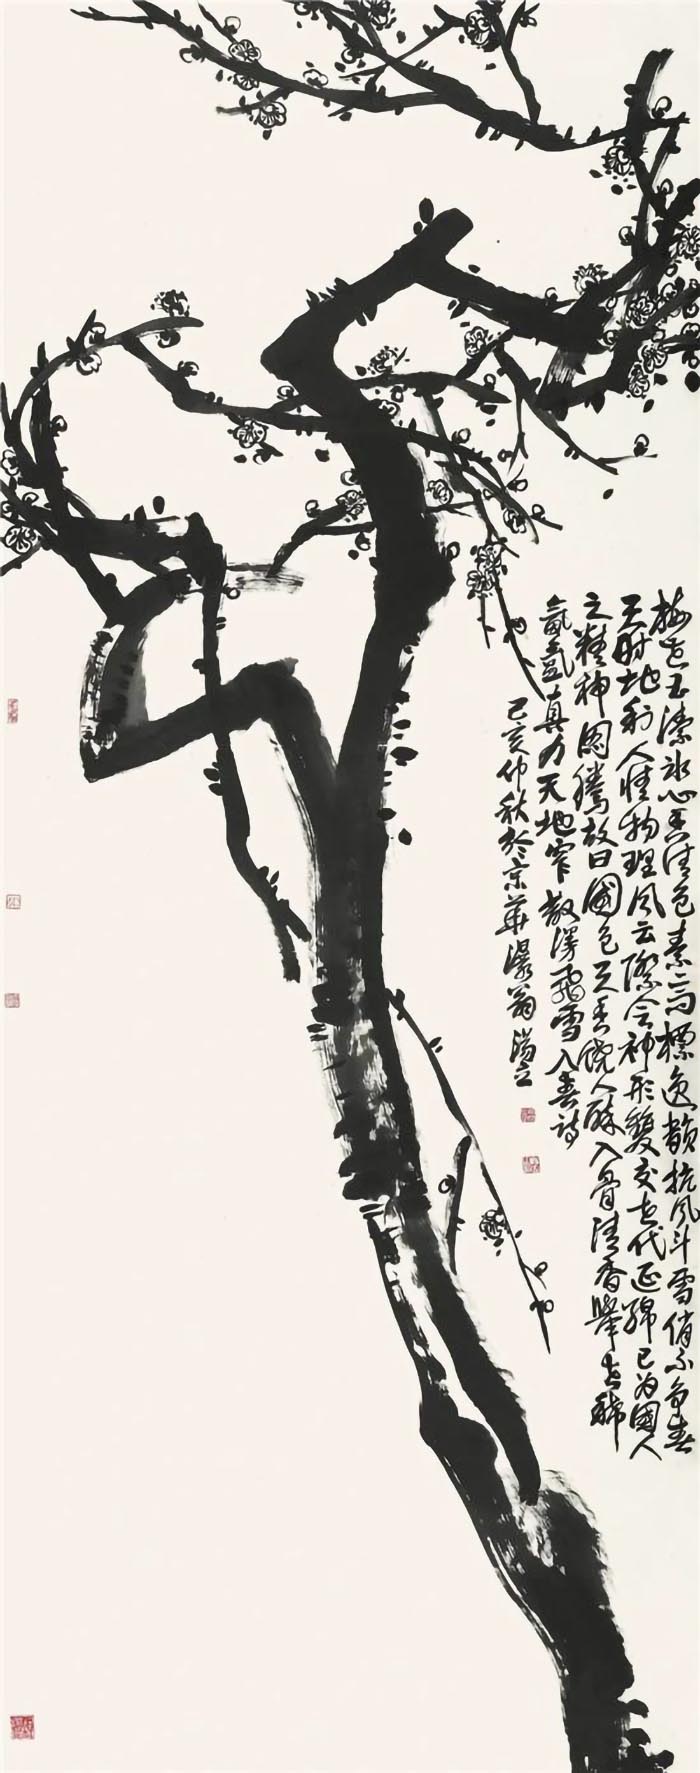 梅者玉潔冰心香清色素高標逸韻抗風斗雪俏不争春
天时地利人情物理风云際会神形雙交世代延綿已为國人
之精神圖騰故曰國色天香饒人酥入骨清香舉世稀
氤氲真力天地窄散漫飛雪入春诗
己亥仲秋於京華瀑翁